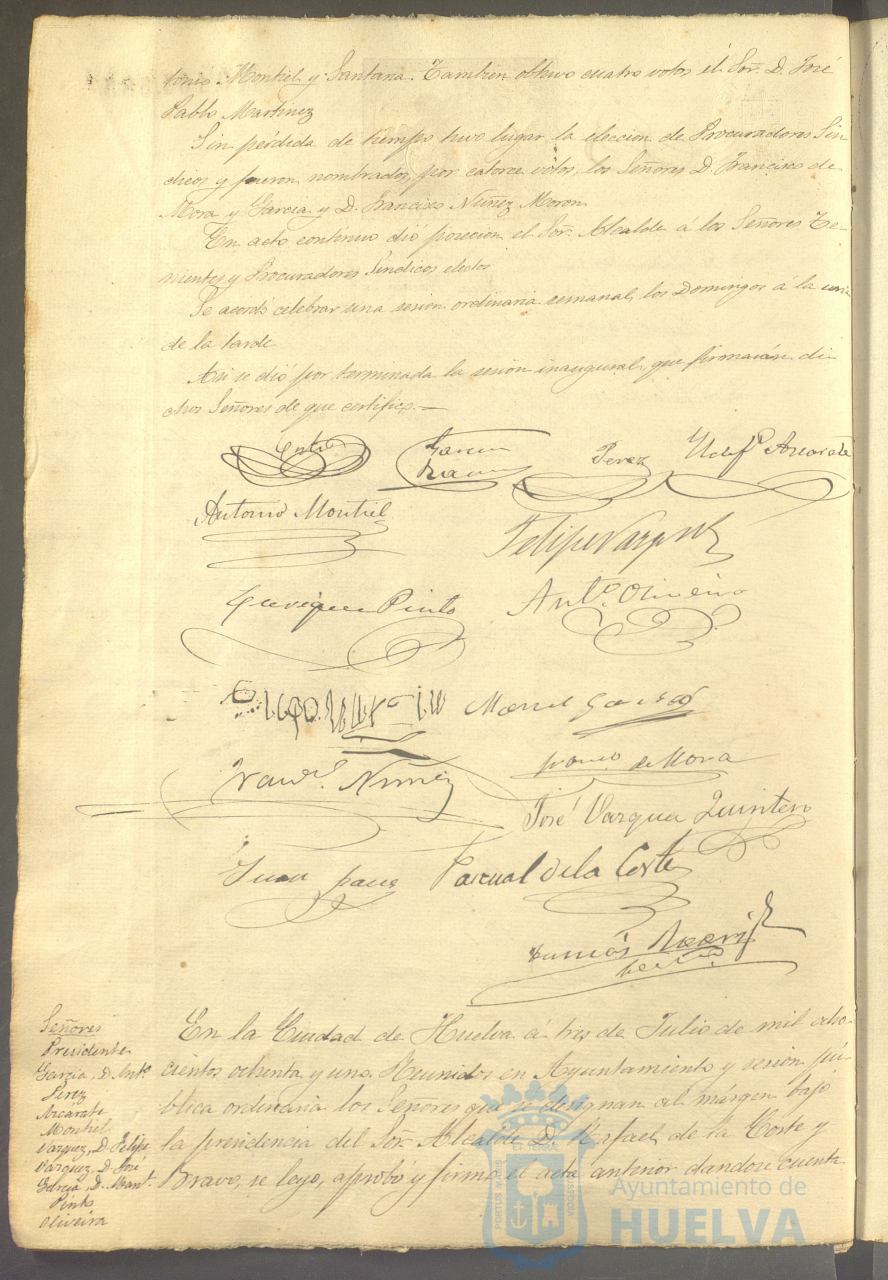 tonio Montiel y Santana. Tambien obtuvo cuatro votos el Sor. D. José
Pablo Martinez
Sin pérdida de tiempo tuvo lugar la eleccion de Procuradores Sin
dicos y fueron nombrados, por catorce votos, los Señores D. Francisco de
Mora y Garcia y D. Francisco Nuñez Moron
En acto contínuo dió posecion el Sor. Alcalde á los Señores Te-
nientes y Procuradores Sindicos electos
Se acordó celebrar una sesion ordinaria semanal, los Domingos á la una
de la tarde
Asi se dió por terminada la sesion inaugural, que firmarán di
chos Señores de que certifico.—
Corte
Garcia
Perez
Antonio Montiel
Felipe Vazquez
Enrique Pinto
Anto. Oliveira
Manuel Garcia
Franco de Mora
Franco. Nuñez
José Vazquez
Juan
Pascual de la Corte
Tomás
Señores
Presidente
Garcia, D. Anto.
Perez
Azcarate
Montiel
Vazquez, D. Felipe
Vazquez, D. José
Garcia, D. Manl.
Pinto
Oliveira
En la Ciudad de Huelva á tres de Julio de mil ocho-
cientos ochenta y uno. Reunidos en Ayuntamiento y sesion pú-
blica ordinaria los Señores que se designan al márgen bajo
la presidencia del Sor. Alcalde D. Rafael de la Corte y
Bravo, se leyó, aprobó y firmó el acta anterior dandose cuenta
PORTUS MARIS
ET TERRAE
CUSTODIA
Ayuntamiento de
HUELVA